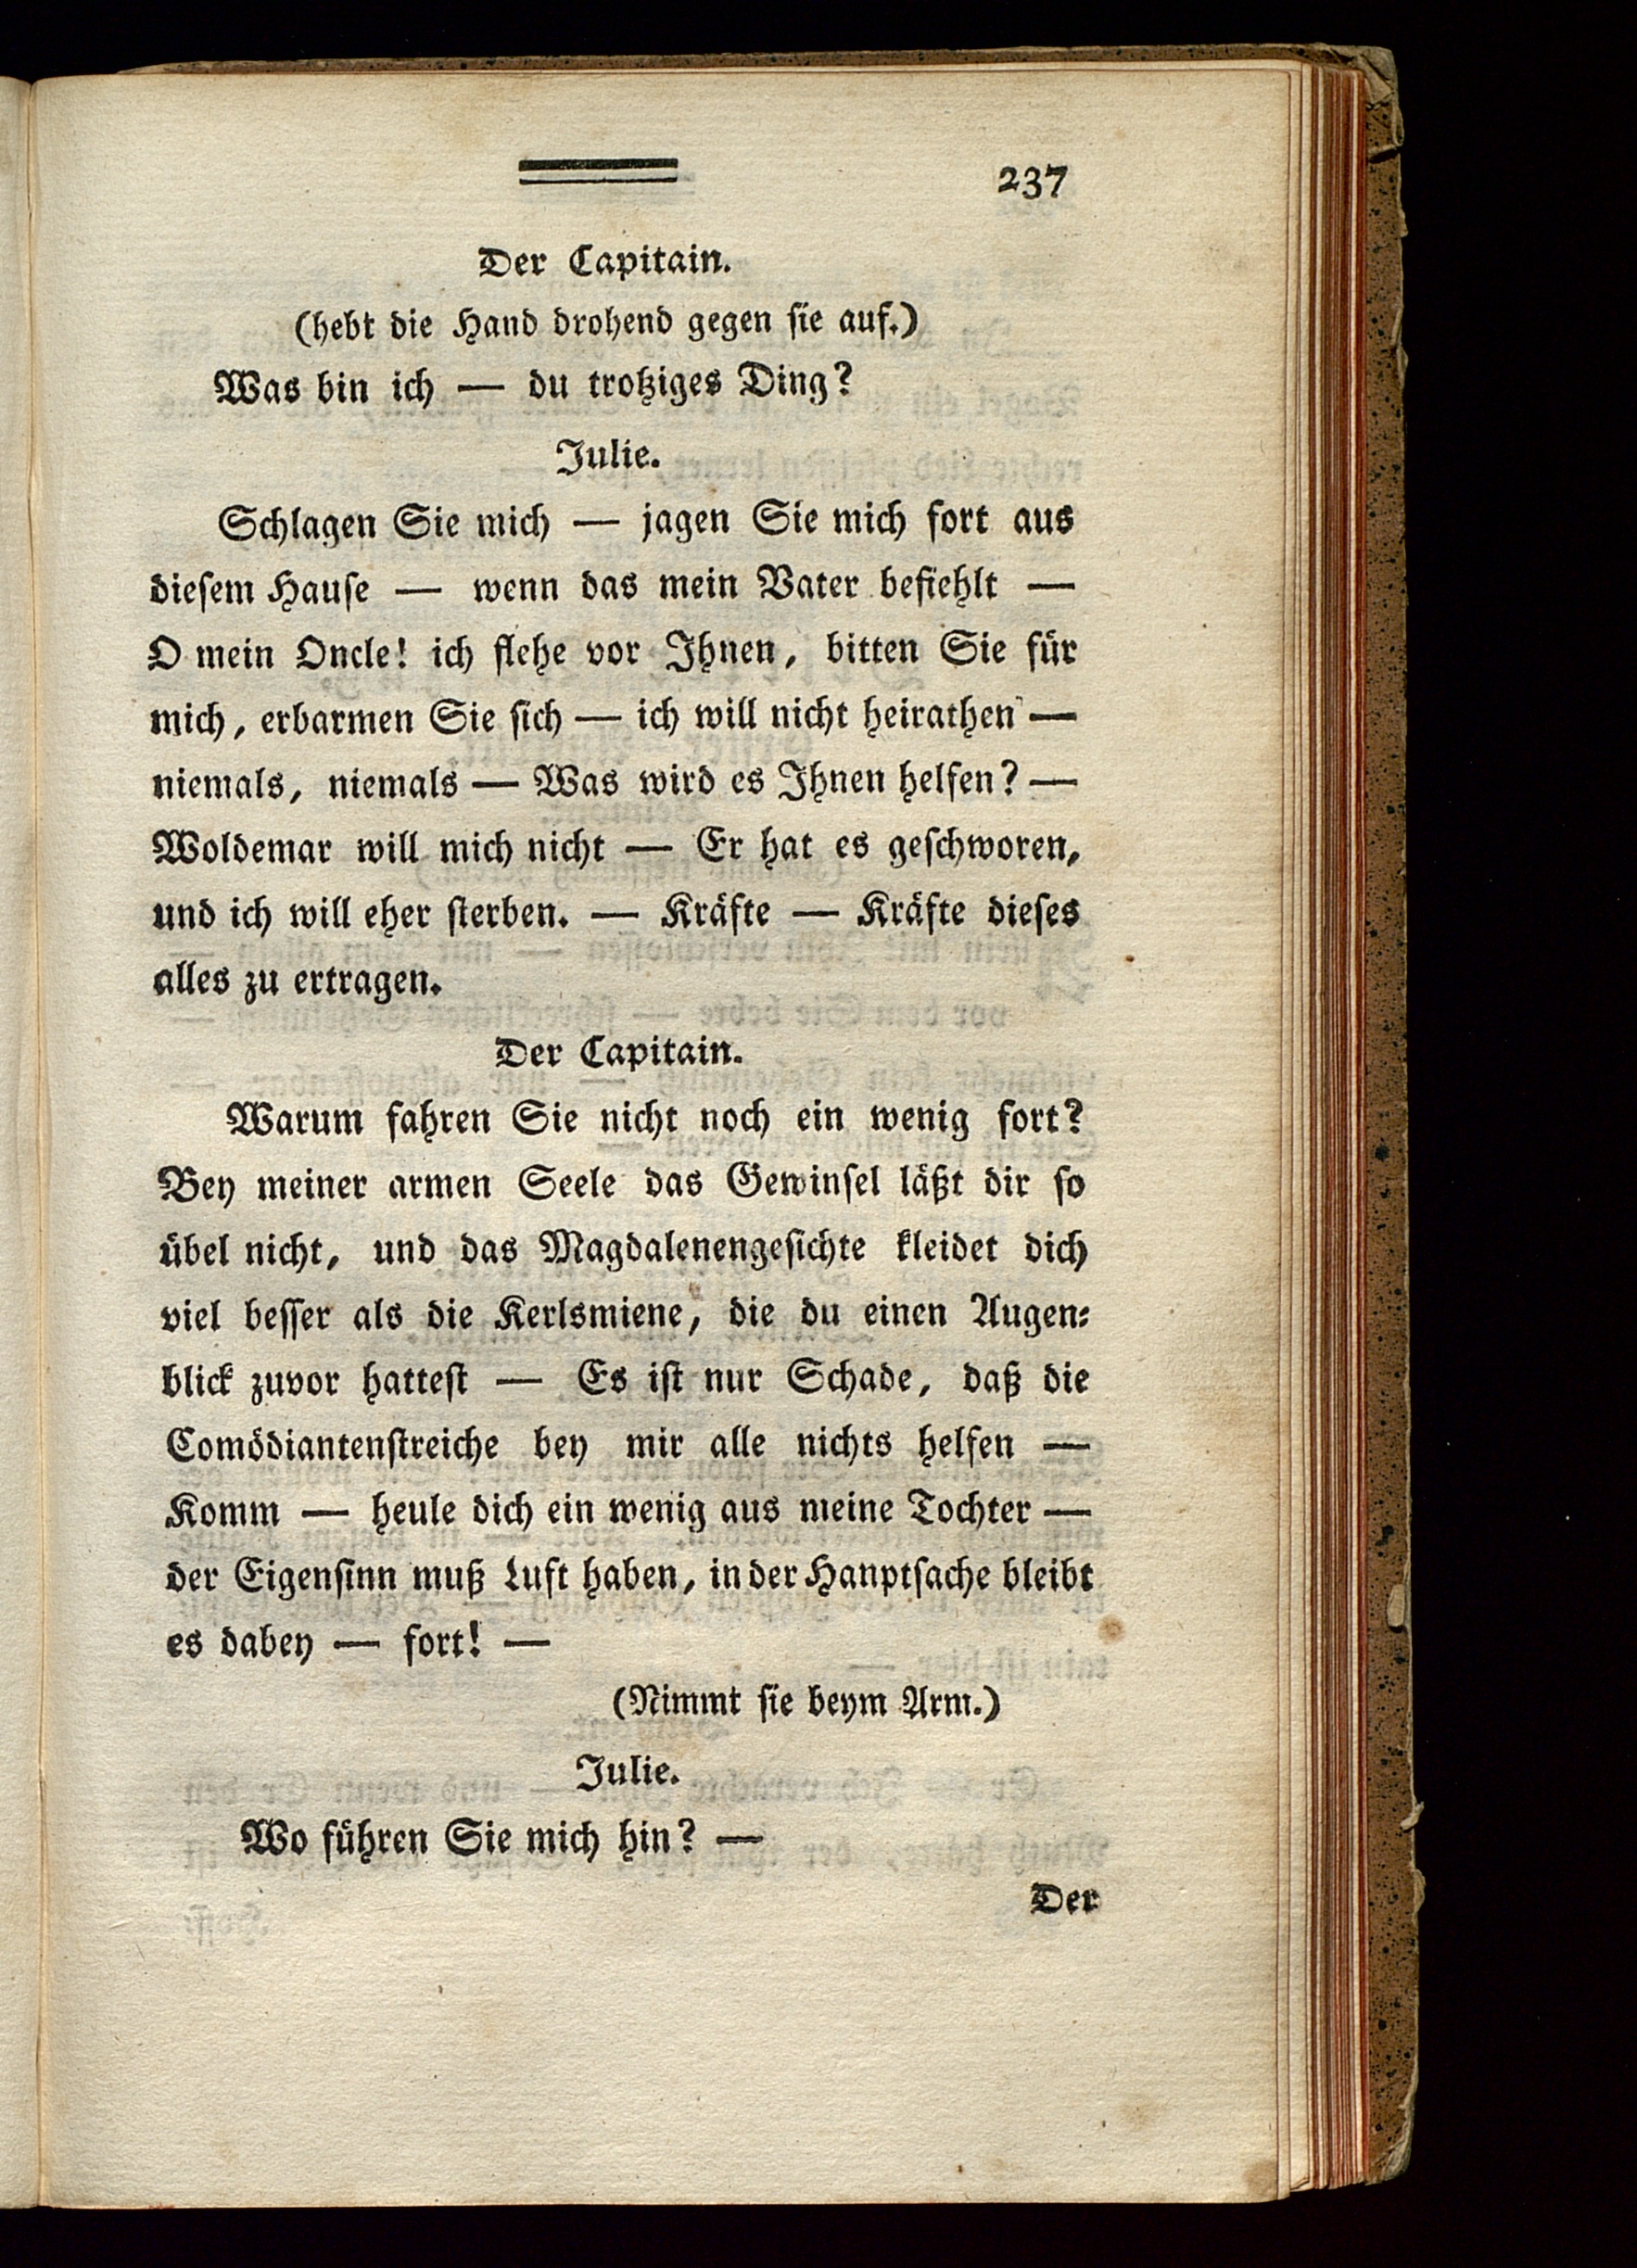 237
Der Capitain.
(hebt die Hand drohend gegen sie auf.)
Was bin ich — du trotziges Ding?
Julie.
Schlagen Sie mich — jagen Sie mich fort aus
diesem Hause — wenn das mein Vater befiehlt —
O mein Oncle! ich flehe vor Ihnen, bitten Sie für
mich, erbarmen Sie sich — ich will nicht heirathen —
niemals, niemals — Was wird es Ihnen helfen? —
Woldemar will mich nicht — Er hat es geschworen,
und ich will eher sterben. — Kräfte — Kräfte dieses
alles zu ertragen.
Der Capitain.
Warum fahren Sie nicht noch ein wenig fort?
Bey meiner armen Seele das Gewinsel läßt dir so
übel nicht, und das Magdalenengesichte kleidet dich
viel besser als die Kerlsmiene, die du einen Augen-
blick zuvor hattest — Es ist nur Schade, daß die
Comödiantenstreiche bey mir alle nichts helfen —
Komm — heule dich ein wenig aus meine Tochter —
der Eigensinn muß Luft haben, in der Hanptsache bleibt
es dabey — fort! —
(Nimmt sie beym Arm.)
Julie.
Wo führen Sie mich hin? —
Der